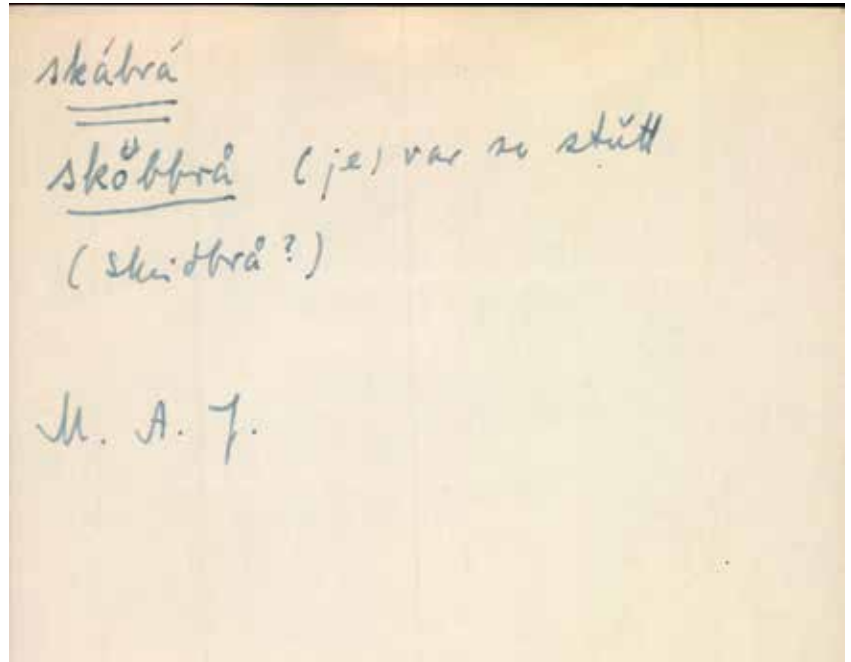 skábrá
skŏ́bbrå (je) var so stŭtt
(skuobrå?)
M. A. J.